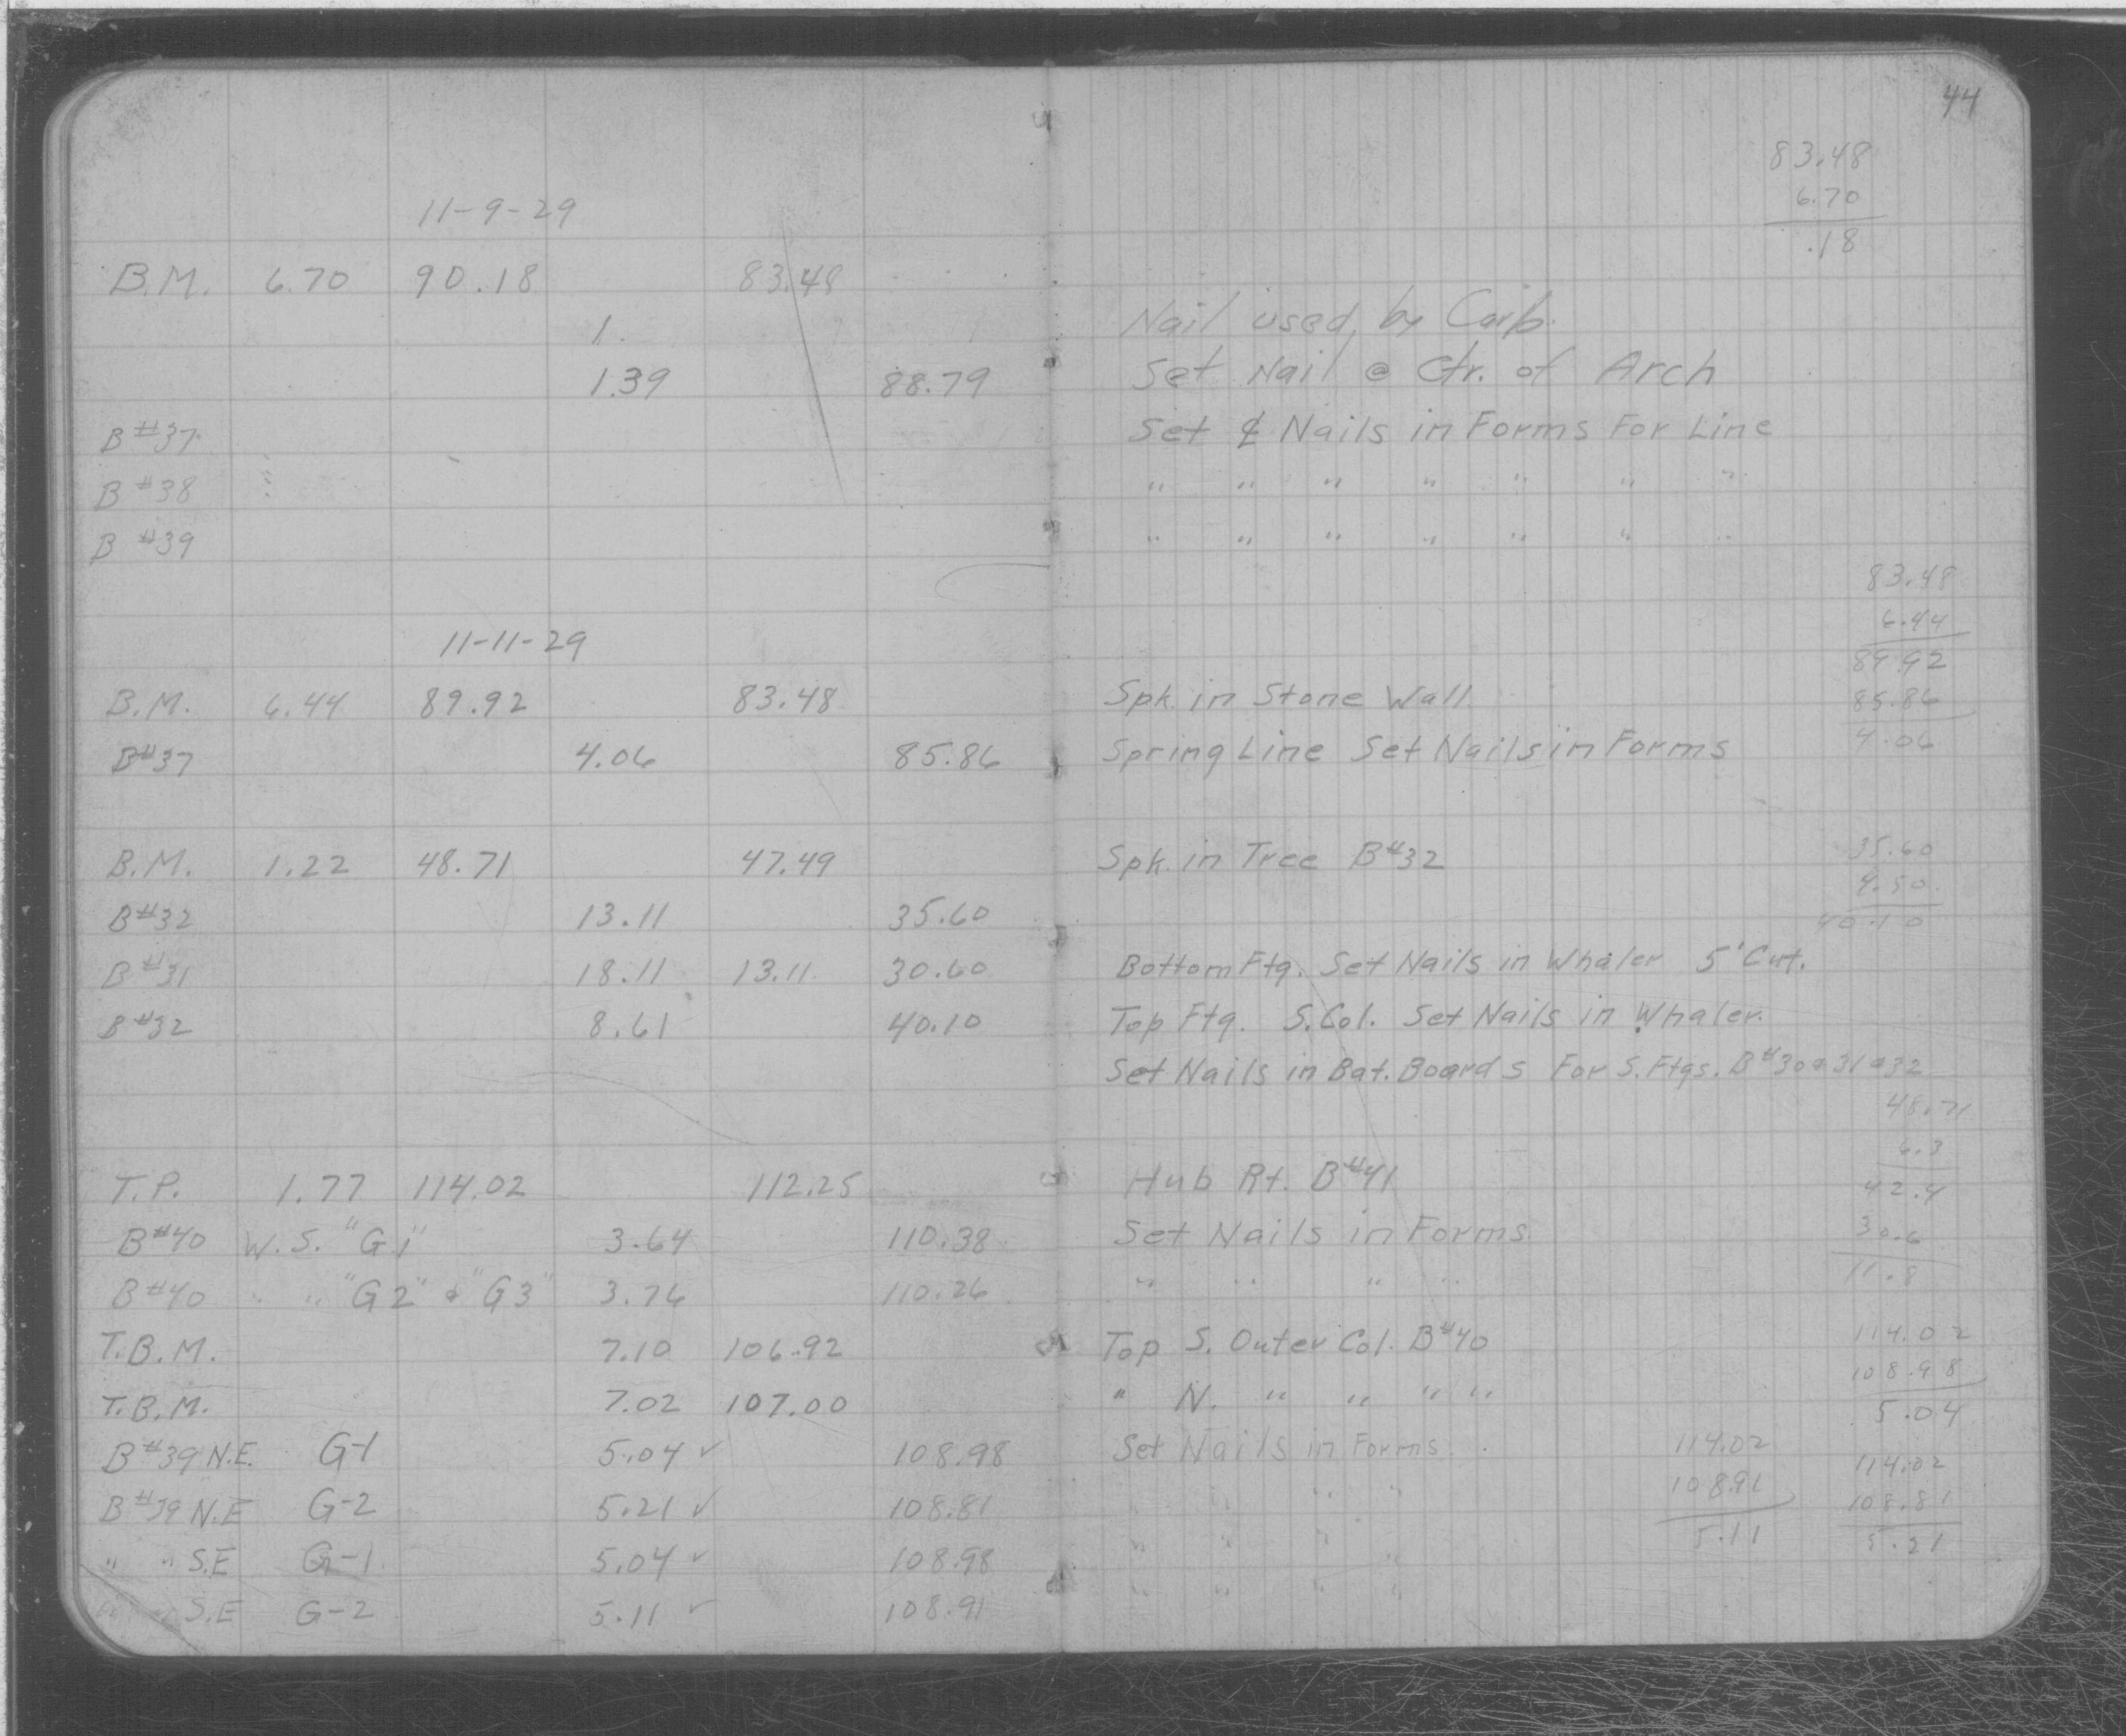 44
83.48
6.70
.18
11-9-29
B.M. 6.70 90.18 83.48
1. Nail used by Carp.
1.39 88.79 Set Nail @ Ctr. of Arch
B#37 Set ¢ Nails in Forms For Line
B#38 " " " " " " "
B #39 " " " " " " "
83.48
6.44
89.92
85.86
4.06
11-11-29
B.M. 6.44 89.92 83.48 Spk. in Stone Wall
B#37 4.06 85.86 Spring Line Set Nails in Forms
B.M. 1.22 48.71 47.49 Spk. in Tree B#32
35.60
4.50
40.10
B#32 13.11 35.60
B#31 18.11 13.11 30.60 Bottom Ftg. Set Nails in Whaler 5' Cut.
B#32 8.61 40.10 Top Ftg. S.Col. Set Nails in Whaler.
Set Nails in Bat. Boards For S.Ftgs. B#30 & 31 & 32
48.71
6.3
42.4
30.6
11.8
T.P. 1.77 114.02 112.25 Hub Rt. B#41
B#40 W.S. "G1" 3.64 110.38 Set Nails in Forms
B#40 " " "G2" & "G3" 3.76 110.26 " " " "
T.B.M. 7.10 106.92 Top S. Outer Col. B#40
T.B.M. 7.02 107.00 " N. " " " "
114.02
108.98
5.04
B#39 N.E. G-1 5.04 ✓ 108.98 Set Nails in Forms.
B#39 N.E G-2 5.21 ✓ 108.81 " " " "
" " S.E G-1 5.04 ✓ 108.98 " " " "
" " S.E G-2 5.11 ✓ 108.91 " " " "
114.02
108.91
5.11
114.02
108.81
5.21